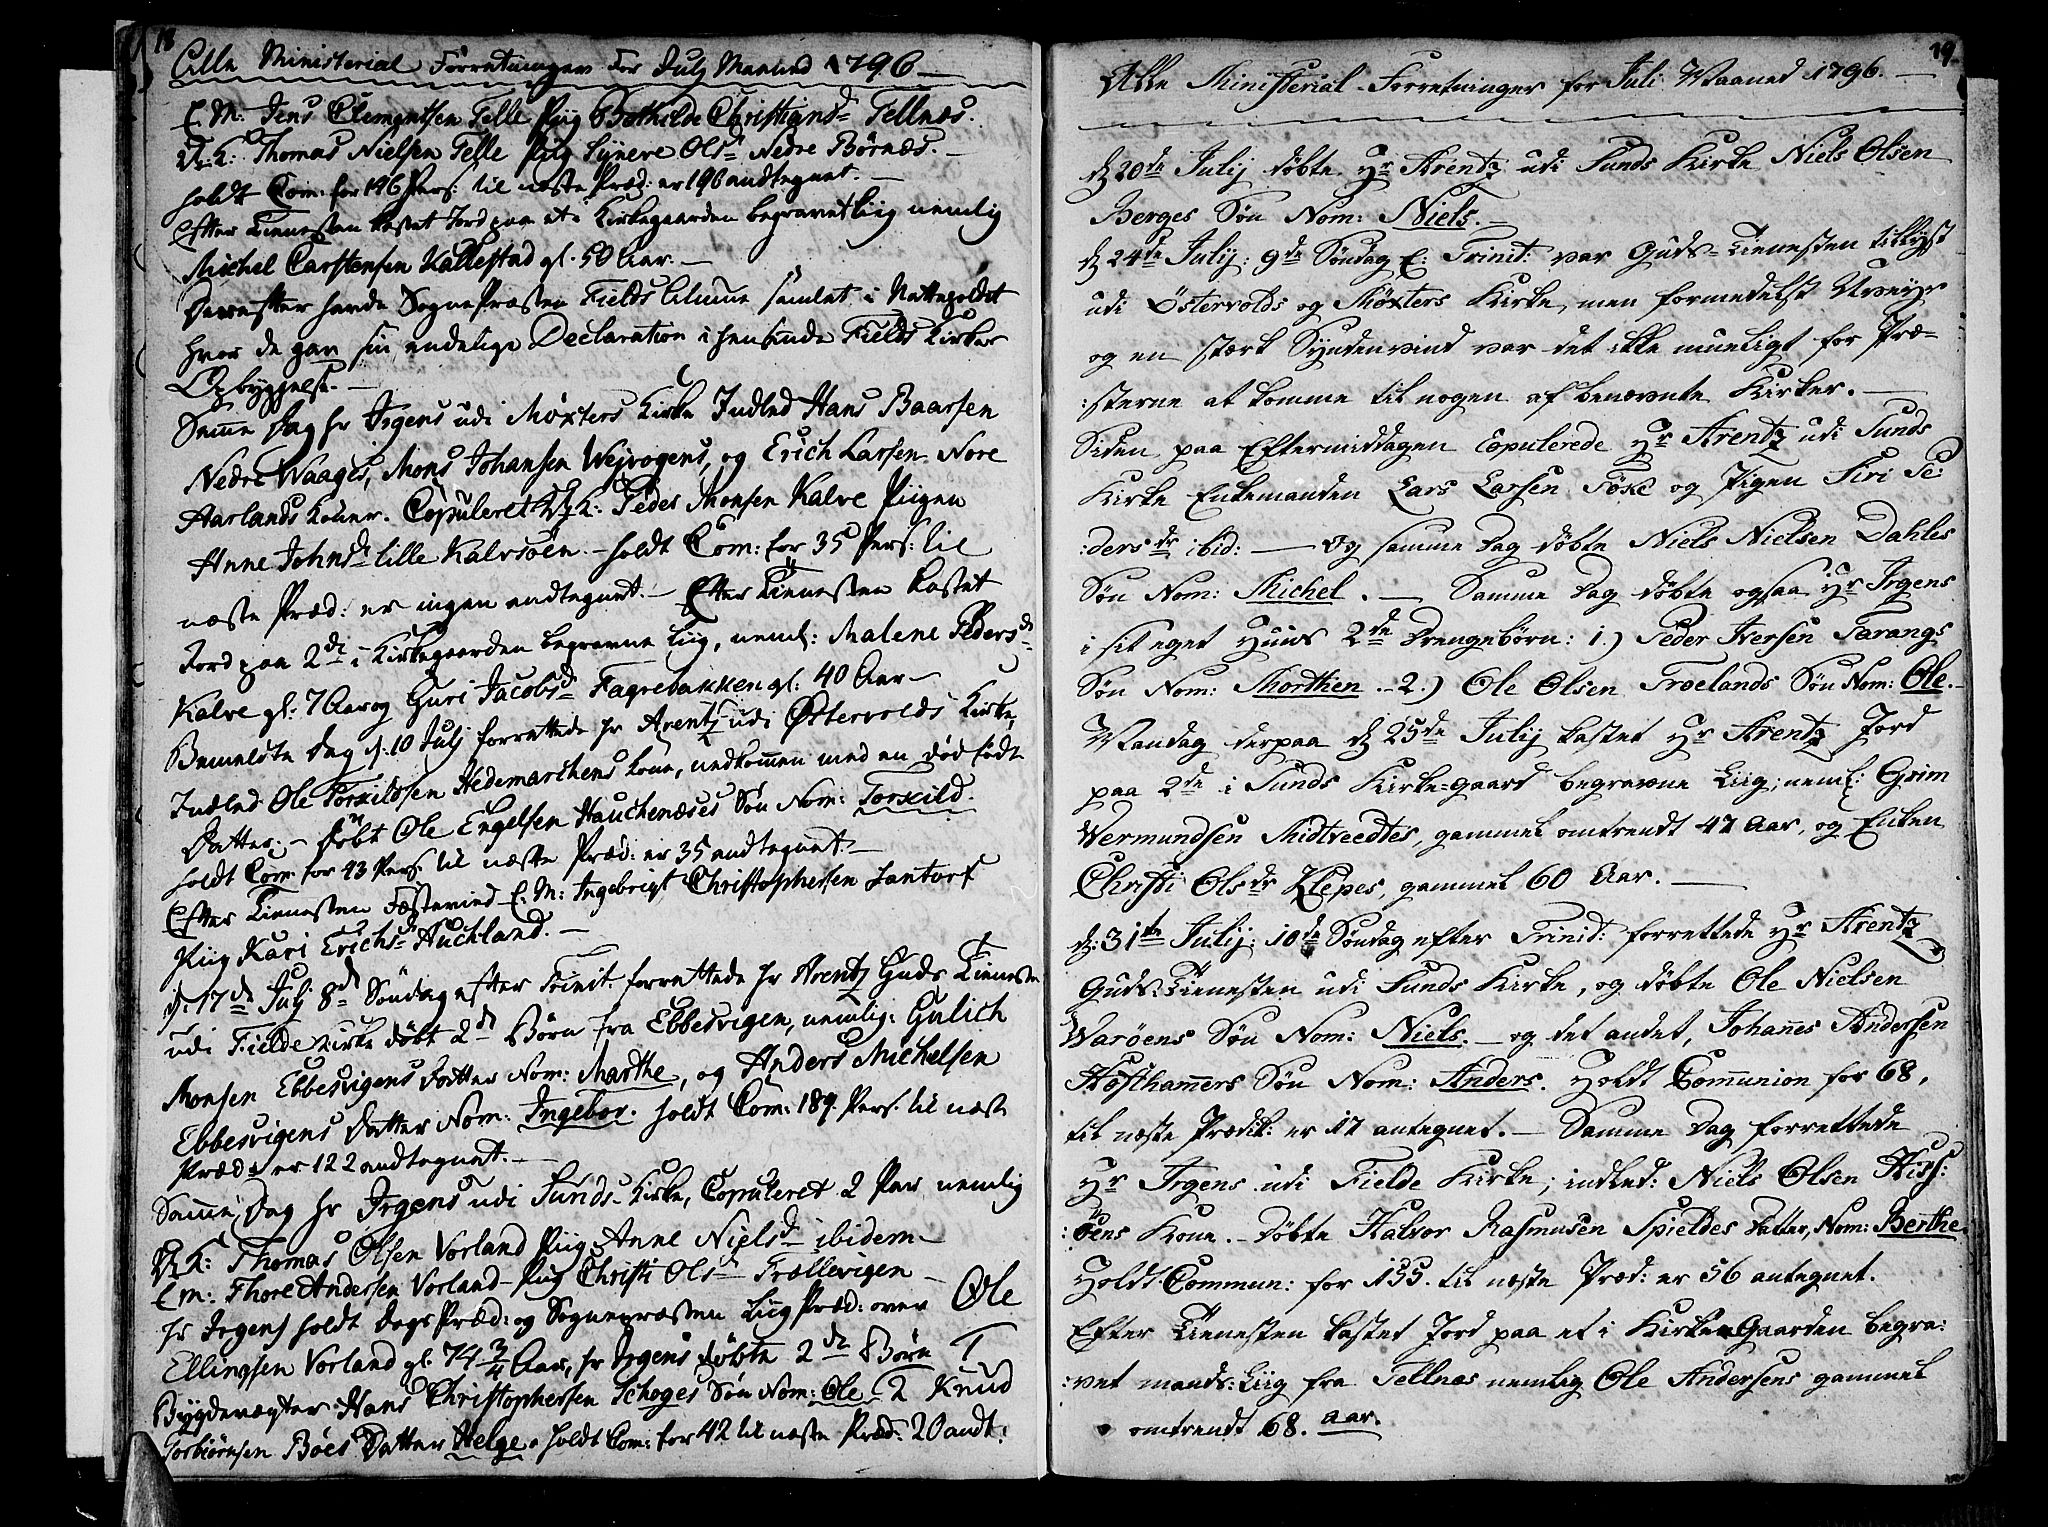 18
Alle Ministerial Forretninger for July Maaned 1796
E. M: Jens Clementsen Telle Piig Bothilde Christiansd. Tellnæs.
U. K: Thomas Nielsen Telle Piig Synneve Olsd. Nedre Børnæs.
holdt Com: for 196 Pers: til næste Præd: er 190 andtegnet.
Efter Tienesten kastet Jord paa et i Kirkegaarden begravet Liig nemlig
Michel Carstensen Kallestad gl. 50 Aar.
Derefter havde SognePræsten Fields Almue samlet i
hvor de gav sin endelige Declaration i henseende Fields Kirkes
Opbyggelse.
Samme Dag hr Irgens udi Møxters Kirke Indled Hans Baarsen
Nedre Waages, Mons Johansen Wejvogens, og Erich Larsen Nore
Aarlands Koner. Copuleret U. K: Peder Monsen Kalve Piigen
Anne Johnsd. lille Kalvsøen. holdt Com: for 35 Pers: til
næste Præd: er ingen andtegnet. Efter Tienesten kastet
Jord paa 2de i Kirkegaarden begravne Liig, neml: Malene Pedersd.
Kalve gl: 7 Aar og Guri Jacobsd. Fagrebakken gl: 40 Aar
Bemeldte Dag d. 10 July forrettede hr Arentz udi Østervolds Kirke,
Indled Ole Torkildsen Hedemarchens Kone, nedkommen med en død født
Datter. Døbt Ole Engelsen Hauchenæses Søn Nom: Torkild.
holdt Com: for 43 Pers. til næste Præd: er 35 andtegnet.
Efter Tienesten Fæstevied E. M: Ingebrigt Christophersen Hantorf
Piig Kari Erichsd. Auchland.
d. 17de July 8de Søndag efter Trinit. forrettede hr Arentz Guds Tieneste
udi Fielde Kirke døbt 2de Børn fra Ebbesvigen, nemlig: Gulich
Monsen Ebbesvigens Datter Nom: Marthe, og Anders Michelsen
Ebbesvigens Datter Nom: Ingebor. holdt Com: 189. Pers. til næste
Præd: er 122 andtegnet.
Samme Dag hr Irgens udi Sunds Kirke, Copuleret 2 Par nemlig
U. K: Thomas Olsen Vorland Piig Anne Nielsd. ibidem
E m: Thore Andersen Vorland Piig Christi Olsd. Trællevigen
hr Irgens holdt Dags Præd: og Sognepræsten Liig Præd: over Ole
Ellingsen Vorland gl. 74 3/4 Aar, hr Irgens døbte 2de Børn 1
Bygdevægter Hans Christophersen Schoges Søn Nom: Ole 2 Knud
Torbiørnsen Bøes Datter Helge. holdt Com: for 42 til næste Præd: 20 andt:
19.
Alle Ministerial-Forretninger for Juli Maaned 1796.
d 20de Julij døbte Hr Arentz udi Sunds Kirke Niels Olsen
Berges Søn Nom: Niels.
d 24de Julij: 9de Søndag E: Trinit: var Guds-Tienesten tillyst
udi Østervolds og Møxters Kirke, men formedelst Uveyr
og en stærk Syndenvind var det ikke mueligt for Præ-
:sterne at komme til nogen af benævnte Kirker.
Siden paa Eftermiddagen Copulerede Hr Arentz udi Sunds
Kirke Enkemanden Lars Larsen Toxe og Pigen Siri Pe:
:dersdr ibid: og samme Dag døbte Niels Nielsen Dahles
Søn Nom: Michel. Samme Dag døbte ogsaa Hr Irgens
i sit eget Huus 2de Drengebørn: 1.) Peder Iversen Tarangs
Søn Nom: Morthen. 2.) Ole Olsen Trælands Søn Nom: Ole.
Mandag derpaa d 25de Julij kastet Hr Arentz Jord
paa 2de i Sunds Kirke-gaard begravne Liig; neml: Grim
Vermundsen Midtveedtes, gammel omtrendt 47 Aar, og Enken
Christi Olsdr Klepes, gammel 60 Aar.
d: 31te Julij: 10de Søndag efter Trinit: forrettede Hr Arentz
Guds-Tienesten udi Sunds Kirke, og døbte Ole Nielsen
Warøens Søn Nom: Niels. og det andet, Johannes Andersen
Høsthamers Søn Nom: Anders. Holdt Communion for 68,
til næste Prædik: er 17 antegnet. Samme Dag forrettede
Hr Irgens udi Fielde Kirke; indled: Niels Olsen Hiss:
:øens Kone. Døbte Halvor Rasmusen Spieldes Datter, Nom: Berthe.
Holdt Commun: for 155. til næste Præd: er 56 antegnet.
Efter Tienesten kastet Jord paa et i Kirke-Gaarden begra:
:vet mands-Liig fra Tellnæs nemlig Ole Andersens gammel
omtrendt 68. Aar.